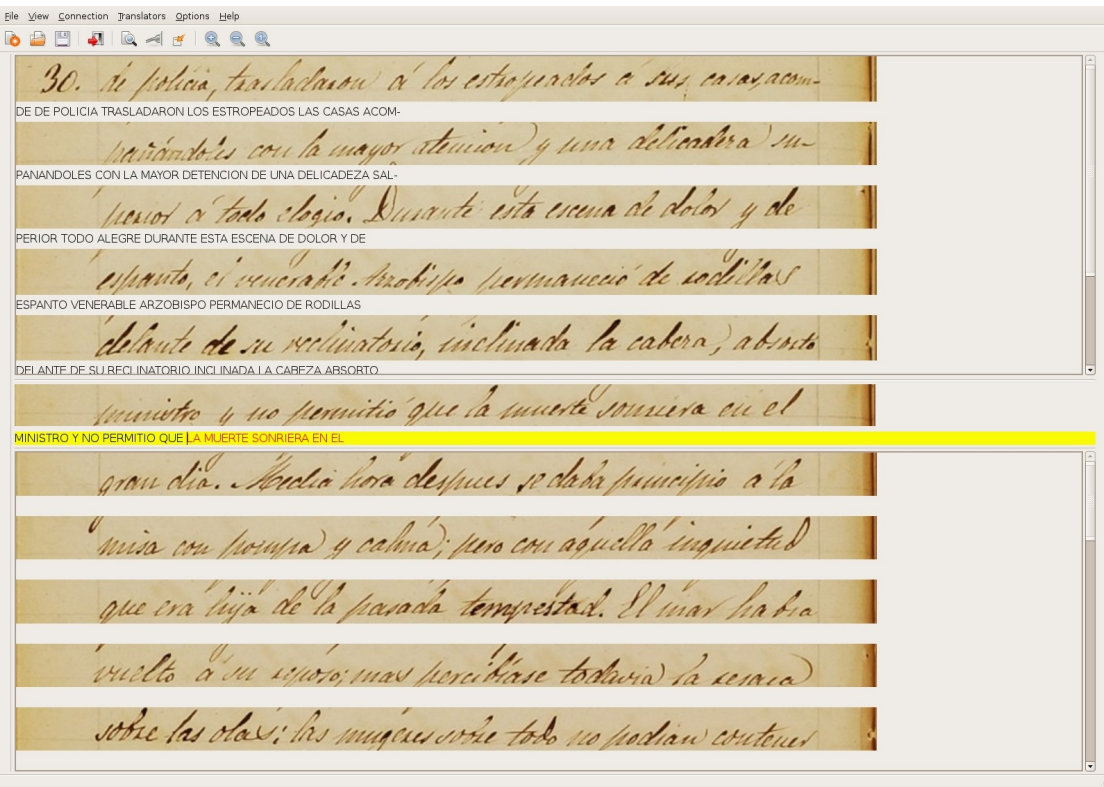 File View Connection Translators Options Help
30. de policía, trasladaron á los estropeados á sus casas, acom-
DE DE POLICIA TRASLADARON LOS ESTROPEADOS LAS CASAS ACOM-
pañándoles con la mayor atencion y una delicadera su-
PANANDOLES CON LA MAYOR DETENCION DE UNA DELICADEZA SAL-
perior á todo elogio. Durante esta escena de dolor y de
PERIOR TODO ALEGRE DURANTE ESTA ESCENA DE DOLOR Y DE
espanto, el venerable Arzobispo permaneció de rodillas
ESPANTO VENERABLE ARZOBISPO PERMANECIO DE RODILLAS
delante de su reclinatorio, inclinada la cabera, absorto
DELANTE DE SU RECLINATORIO INCLINADA LA CABEZA ABSORTO
ministro y no permitió que la muerte sonriera en el
MINISTRO Y NO PERMITIO QUE LA MUERTE SONRIERA EN EL
gran dia. Media hora despues se daba principio á la
misa con pompa y calma; pero con aquella inquietud
que era hija de la pasada tempestad. El mar habia
vuelto á su reposo; mas percibíase todavia la resaca
sobre las olas; las mugeres sobre todo no podian contener